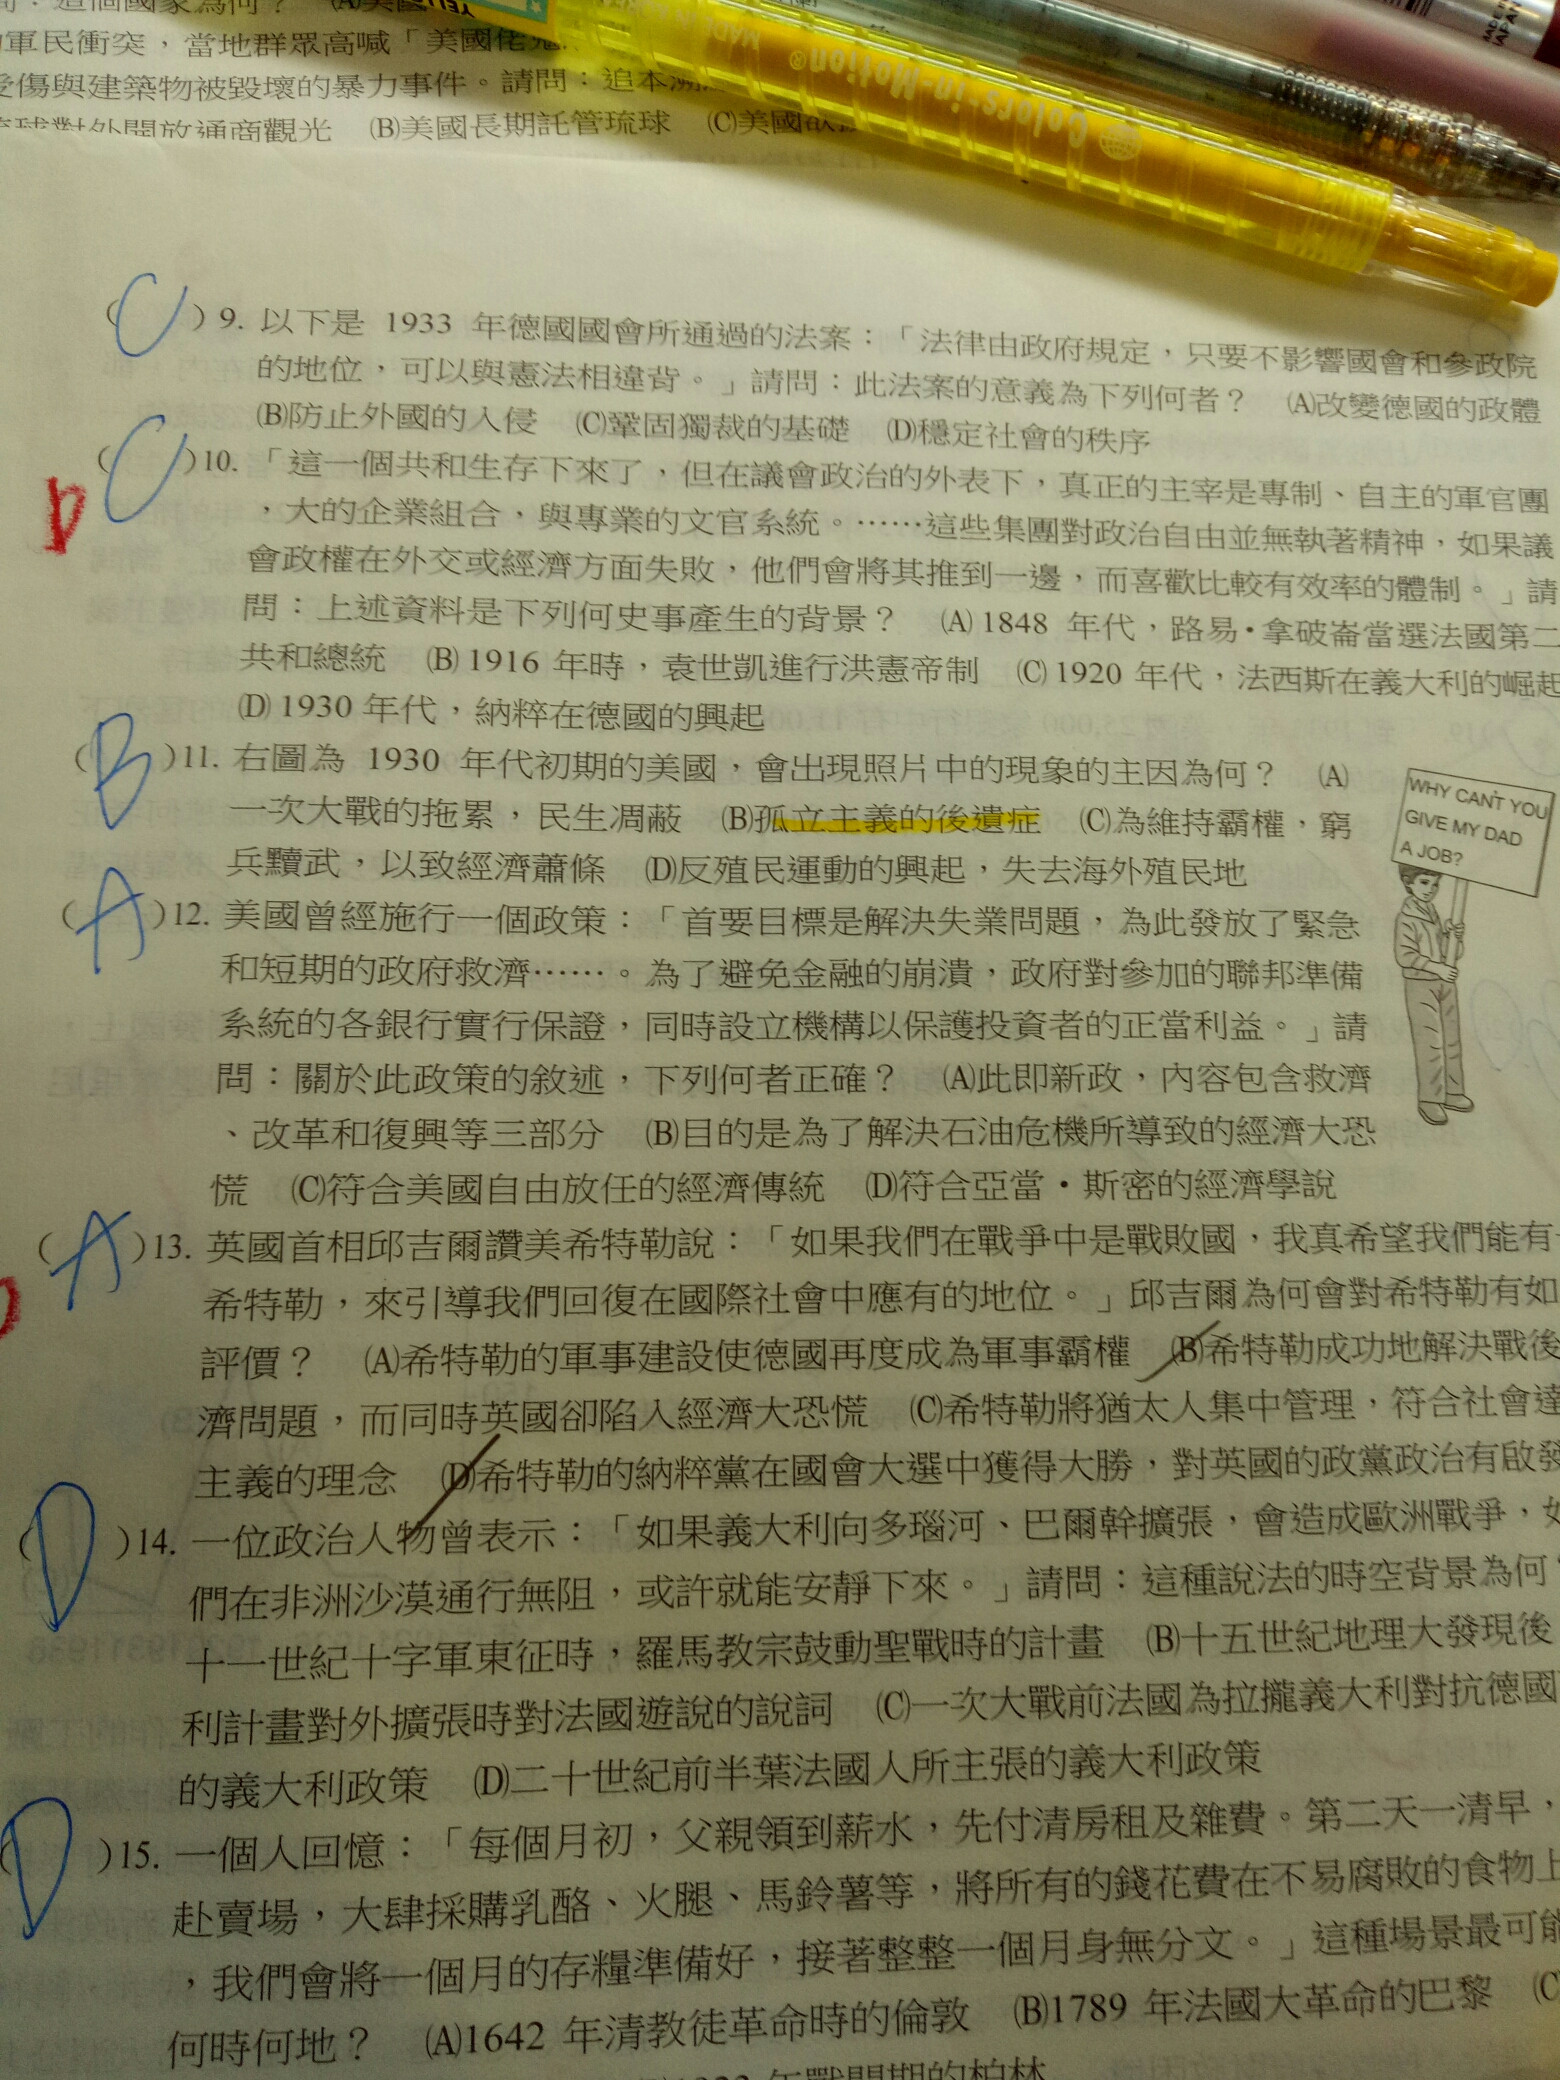 這個國家為何？
軍民衝突，當地群眾高喊「美國佬
受傷與建築物被毀壞的暴力事件。請問：追本溯
對外開放通商觀光 (B)美國長期託管琉球 (C)美國欲
Colors-in-Motion®
MADE IN
JAPAN
(C)9. 以下是 1933 年德國國會所通過的法案：「法律由政府規定，只要不影響國會和參政院
的地位，可以與憲法相違背。」請問：此法案的意義為下列何者？ (A)改變德國的政體
(B)防止外國的入侵 (C)鞏固獨裁的基礎 (D)穩定社會的秩序
(C)10. 「這一個共和生存下來了，但在議會政治的外表下，真正的主宰是專制、自主的軍官團
D
，大的企業組合，與專業的文官系統。……這些集團對政治自由並無執著精神，如果議
會政權在外交或經濟方面失敗，他們會將其推到一邊，而喜歡比較有效率的體制。」請
問：上述資料是下列何史事產生的背景？ (A) 1848 年代，路易•拿破崙當選法國第二
共和總統 (B) 1916 年時，袁世凱進行洪憲帝制 (C) 1920 年代，法西斯在義大利的崛起
(D) 1930 年代，納粹在德國的興起
(B)11. 右圖為 1930 年代初期的美國，會出現照片中的現象的主因為何？ (A)
一次大戰的拖累，民生凋蔽 (B)孤立主義的後遺症 (C)為維持霸權，窮
兵黷武，以致經濟蕭條 (D)反殖民運動的興起，失去海外殖民地
WHY CAN'T YOU
GIVE MY DAD
A JOB?
(A)12. 美國曾經施行一個政策：「首要目標是解決失業問題，為此發放了緊急
和短期的政府救濟……。為了避免金融的崩潰，政府對參加的聯邦準備
系統的各銀行實行保證，同時設立機構以保護投資者的正當利益。」請
問：關於此政策的敘述，下列何者正確？ (A)此即新政，內容包含救濟
、改革和復興等三部分 (B)目的是為了解決石油危機所導致的經濟大恐
慌 (C)符合美國自由放任的經濟傳統 (D)符合亞當•斯密的經濟學說
(A)13. 英國首相邱吉爾讚美希特勒說：「如果我們在戰爭中是戰敗國，我真希望我們能有
希特勒，來引導我們回復在國際社會中應有的地位。」邱吉爾為何會對希特勒有如
評價？ (A)希特勒的軍事建設使德國再度成為軍事霸權 (B)希特勒成功地解決戰後
濟問題，而同時英國卻陷入經濟大恐慌 (C)希特勒將猶太人集中管理，符合社會達
主義的理念 (D)希特勒的納粹黨在國會大選中獲得大勝，對英國的政黨政治有啟發
(D)14. 一位政治人物曾表示：「如果義大利向多瑙河、巴爾幹擴張，會造成歐洲戰爭，如
們在非洲沙漠通行無阻，或許就能安靜下來。」請問：這種說法的時空背景為何
十一世紀十字軍東征時，羅馬教宗鼓動聖戰時的計畫 (B)十五世紀地理大發現後
利計畫對外擴張時對法國遊說的說詞 (C)一次大戰前法國為拉攏義大利對抗德國
的義大利政策 (D)二十世紀前半葉法國人所主張的義大利政策
(D)15. 一個人回憶：「每個月初，父親領到薪水，先付清房租及雜費。第二天一清早，
赴賣場，大肆採購乳酪、火腿、馬鈴薯等，將所有的錢花費在不易腐敗的食物上
，我們會將一個月的存糧準備好，接著整整一個月身無分文。」這種場景最可能
何時何地？ (A)1642 年清教徒革命時的倫敦 (B)1789 年法國大革命的巴黎 (C
年戰間期的柏林